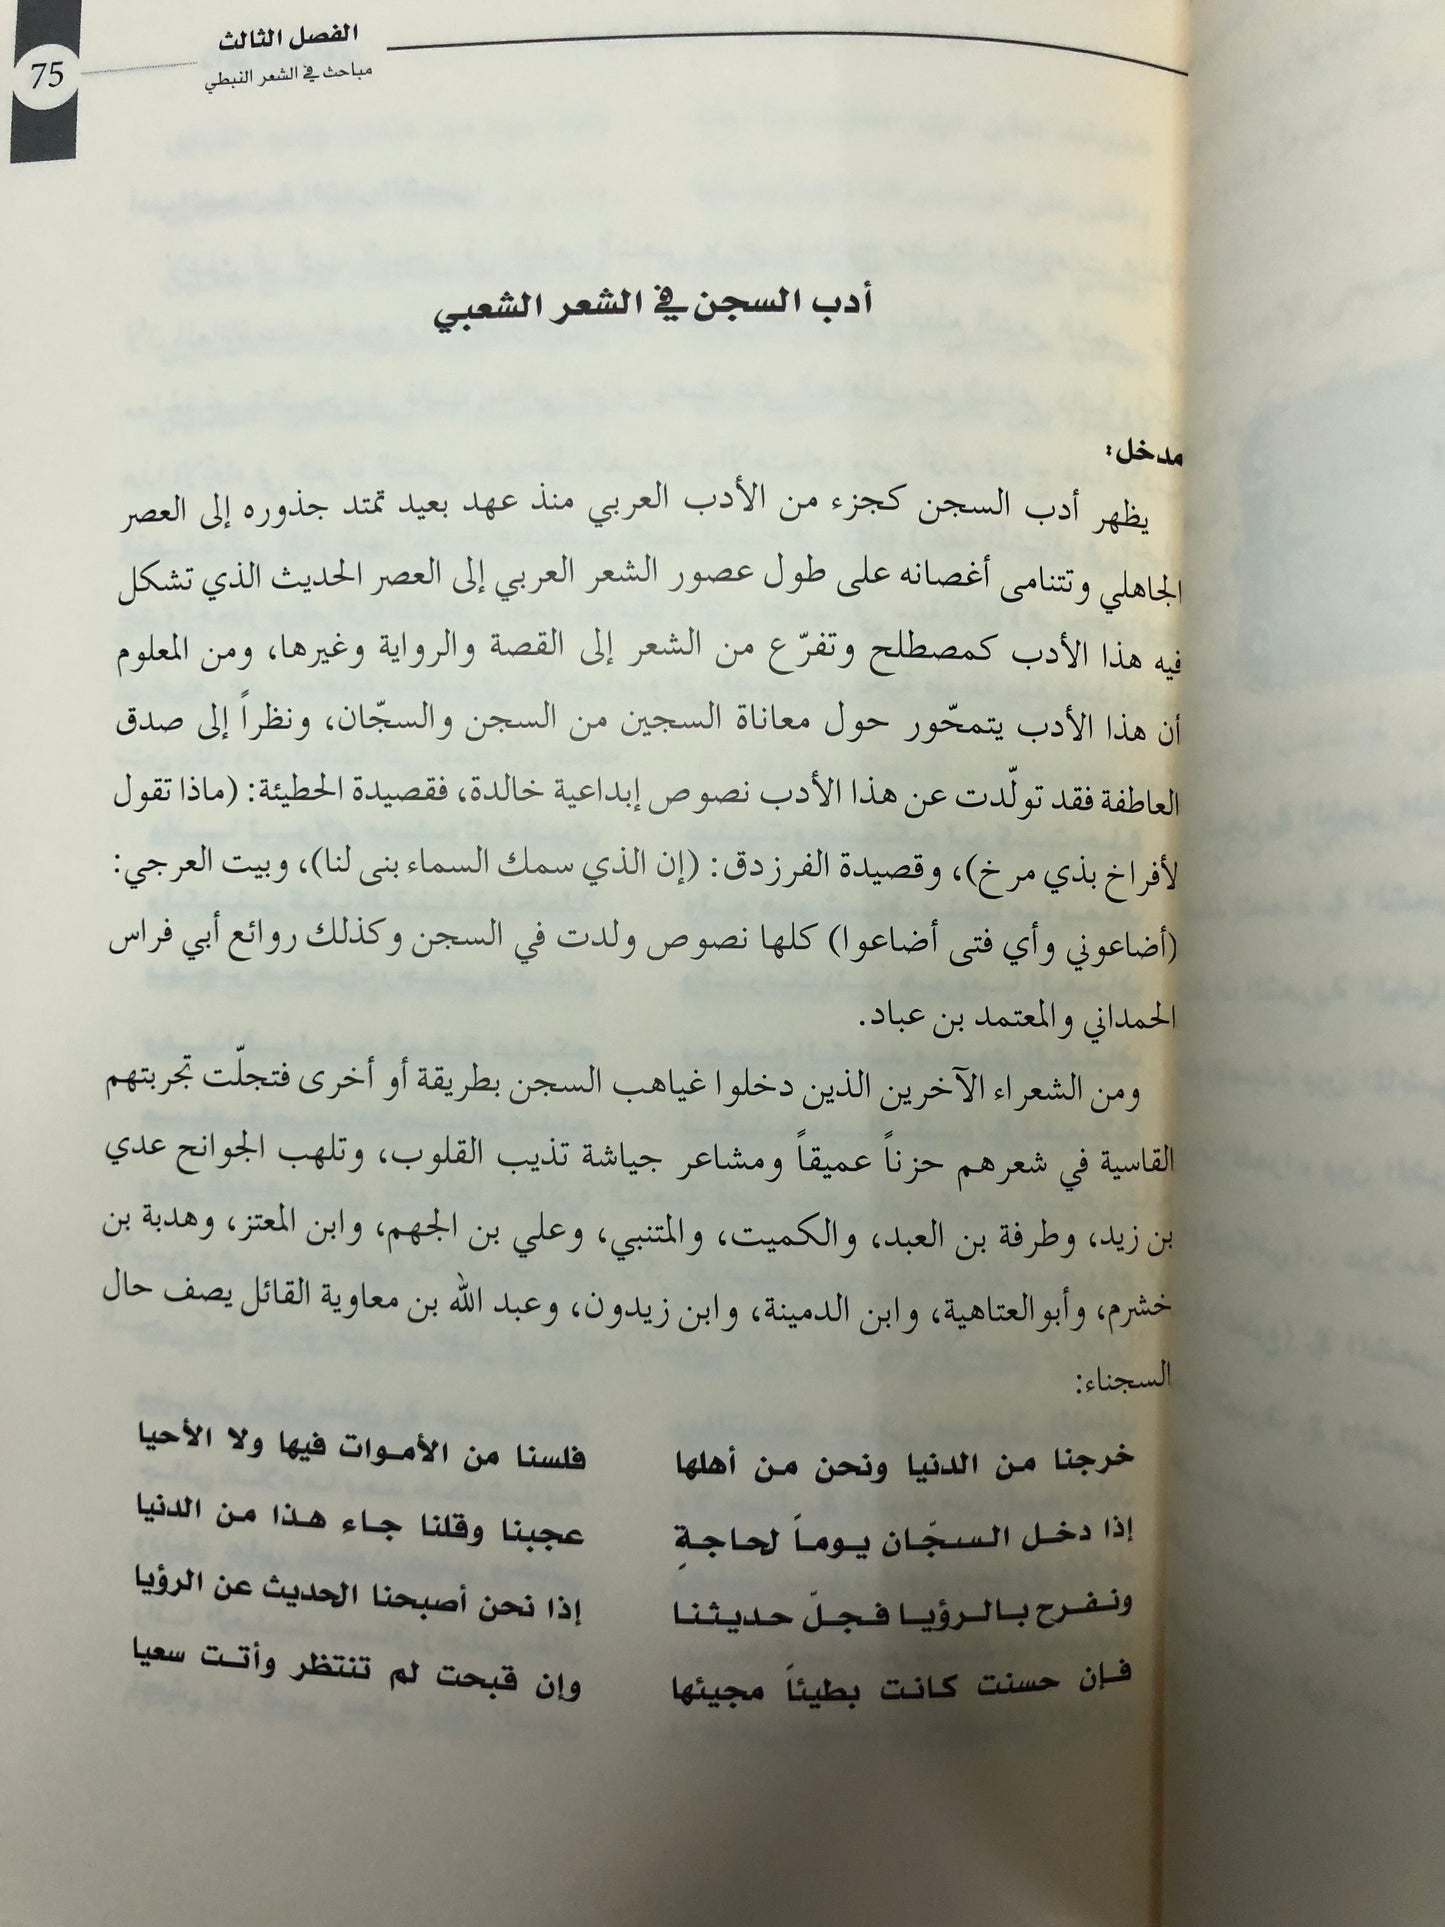 الفصل الثالث
مباحث في الشعر النبطي
75
أدب السجن في الشعر الشعبي
مدخل:
يظهر أدب السجن كجزء من الأدب العربي منذ عهد بعيد تمتد جذوره إلى العصر
الجاهلي وتتنامى أغصانه على طول عصور الشعر العربي إلى العصر الحديث الذي تشكل
فيه هذا الأدب كمصطلح وتفرّع من الشعر إلى القصة والرواية وغيرها، ومن المعلوم
أن هذا الأدب يتمحّور حول معاناة السجين من السجن والسجّان، ونظراً إلى صدق
العاطفة فقد تولّدت عن هذا الأدب نصوص إبداعية خالدة، فقصيدة الحطيئة: (ماذا تقول
لأفراخ بذي مرخ)، وقصيدة الفرزدق: (إن الذي سمك السماء بنى لنا)، وبيت العرجي:
(أضاعوني وأي فتى أضاعوا) كلها نصوص ولدت في السجن وكذلك روائع أبي فراس
الحمداني والمعتمد بن عباد.
ومن الشعراء الآخرين الذين دخلوا غياهب السجن بطريقة أو أخرى فتجلّت تجربتهم
القاسية في شعرهم حزناً عميقاً ومشاعر جياشة تذيب القلوب، وتلهب الجوانح عدي
بن زيد، وطرفة بن العبد، والكميت، والمتنبي، وعلي بن الجهم، وابن المعتز، وهدبة بن
خشرم، وأبو العتاهية، وابن الدمينة، وابن زيدون، وعبد الله بن معاوية القائل يصف حال
السجناء:
خرجنا من الدنيا ونحن من أهلها فلسنا من الأموات فيها ولا الأحيا
إذا دخل السجّان يوماً لحاجةٍ عجبنا وقلنا جاء هذا من الدنيا
ونفرح بالرؤيا فجلّ حديثنا إذا نحن أصبحنا الحديث عن الرؤيا
فإن حسنت كانت بطيئاً مجيئها وإن قبحت لم تنتظر وأتت سعيا